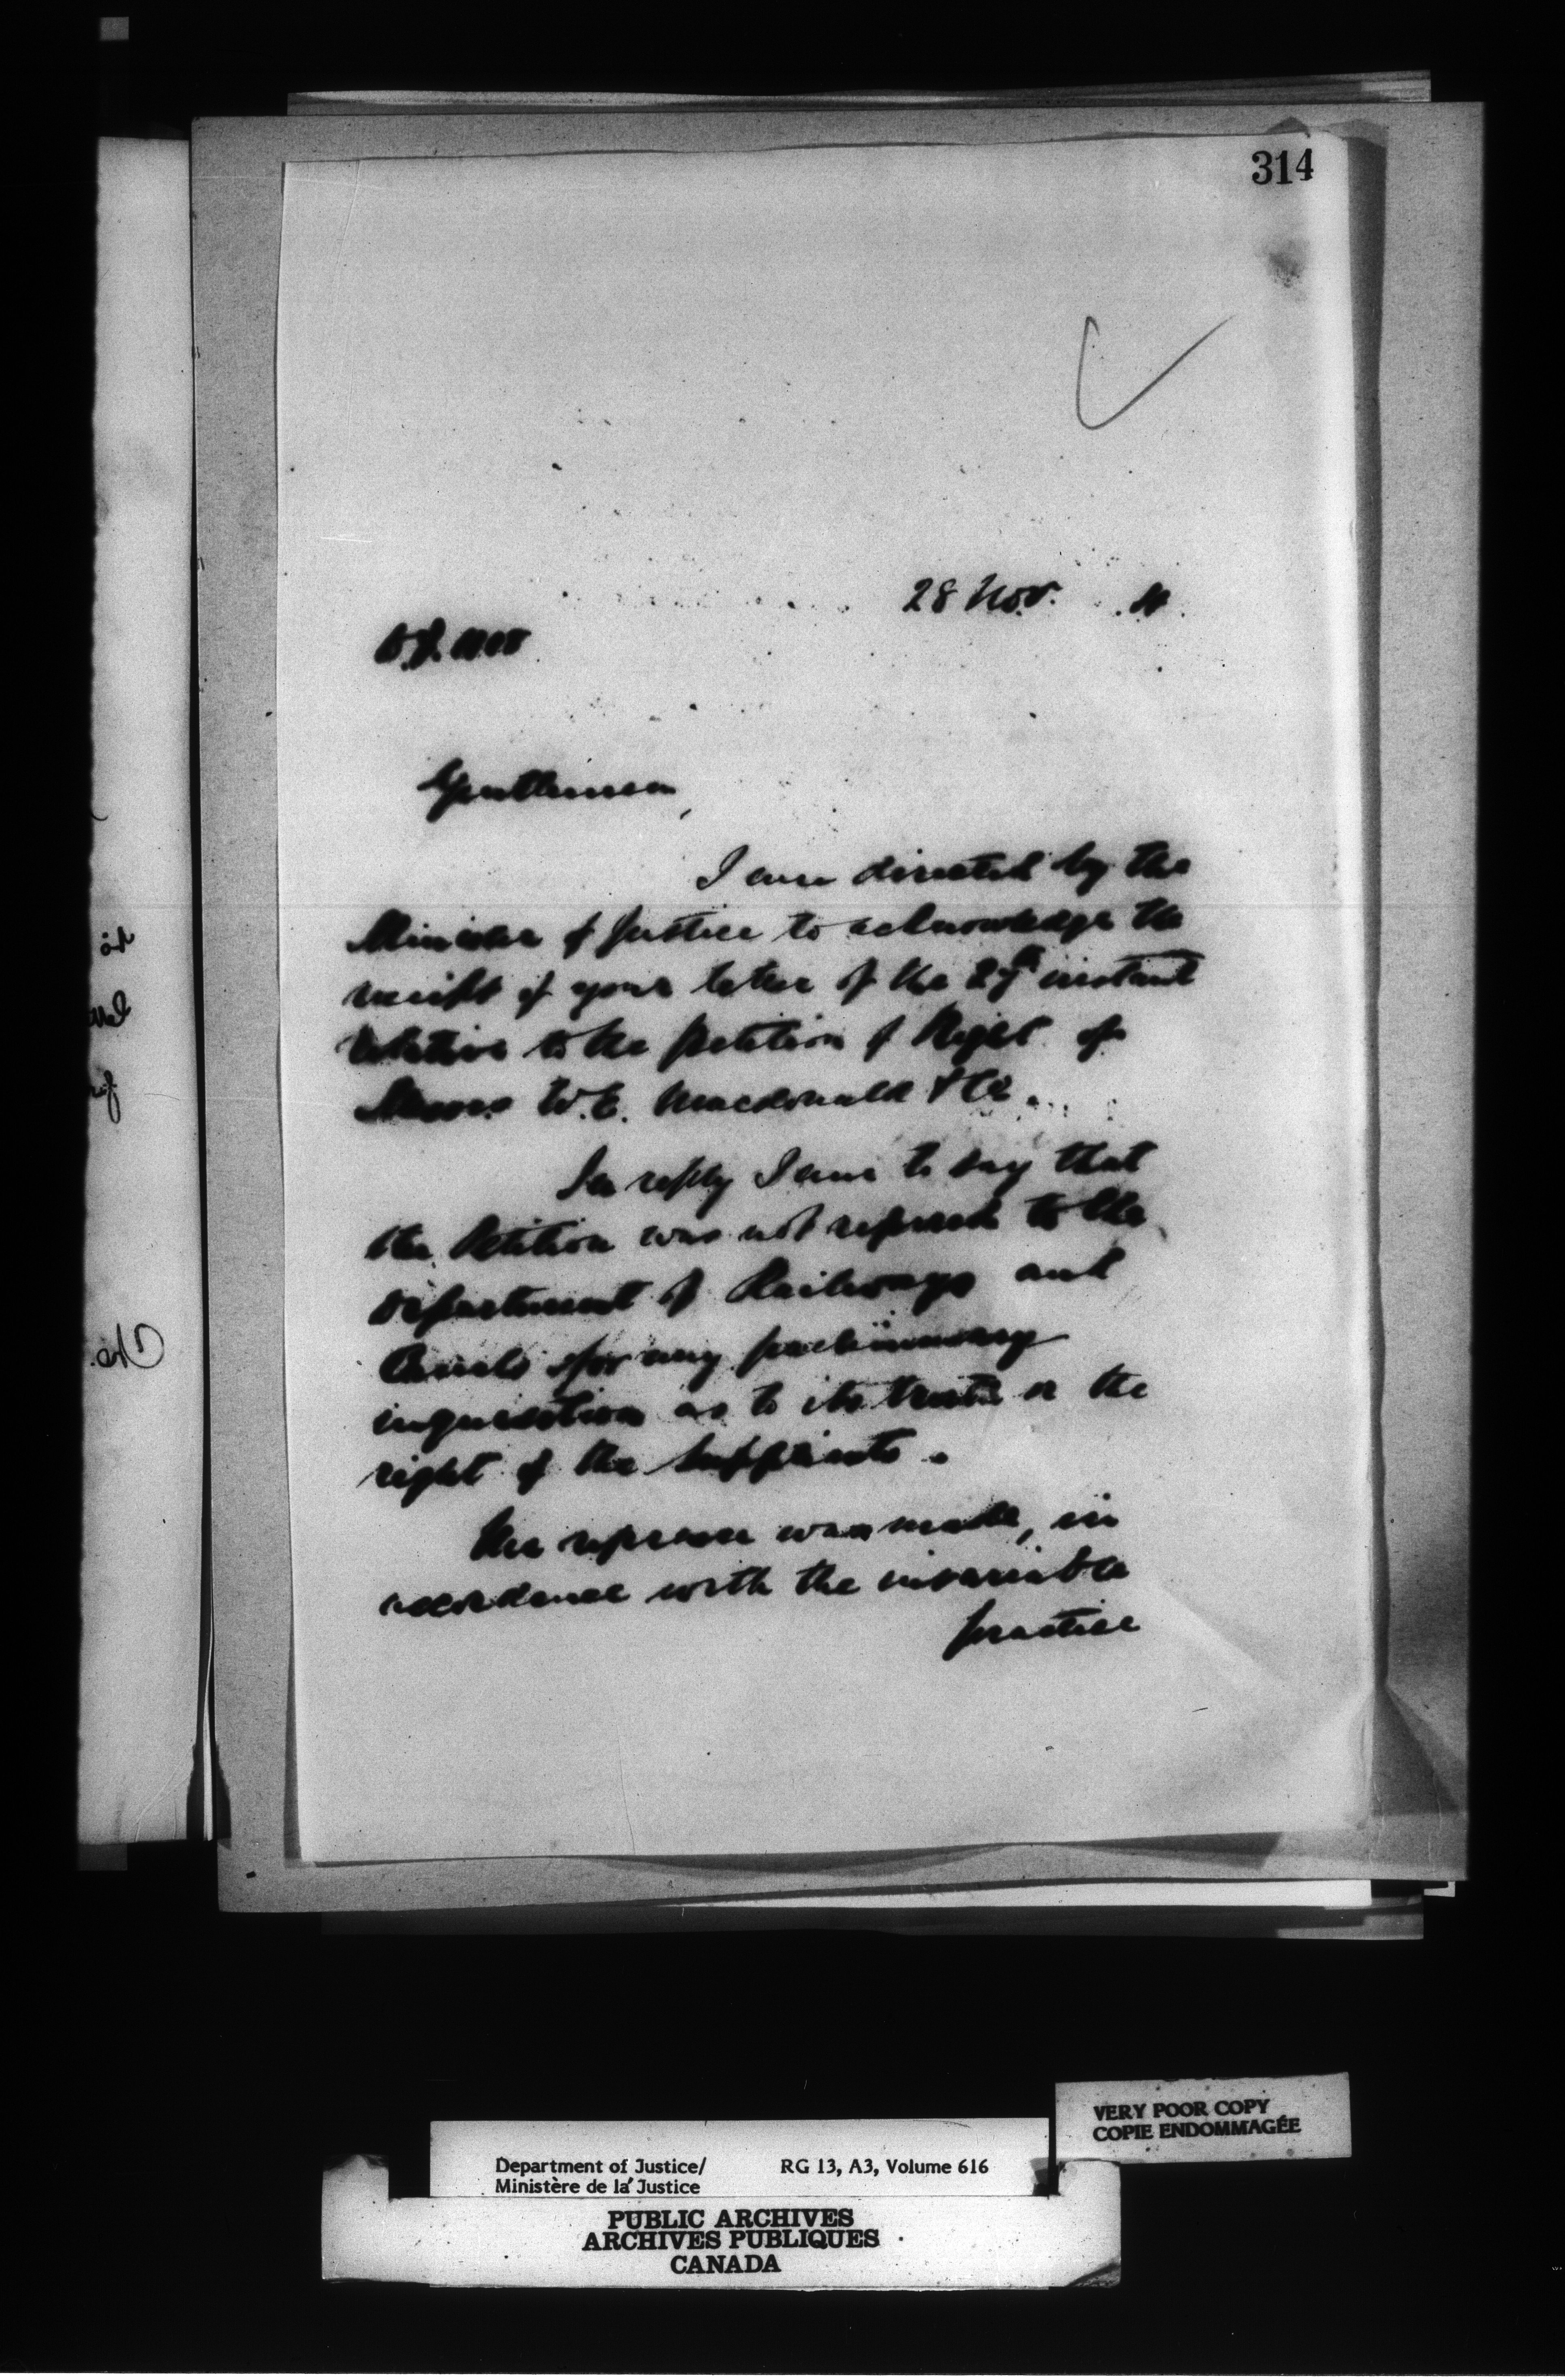 314
28 Nov.
Gentlemen,
I am directed by the
Minister of Justice to acknowledge the
receipt of your letter of the 27th instant
relative to the petition of Right of
Messrs W.E. Macdonald & Co.
In reply I am to say that
the Petition was not referred to the
Department of Railways and
Canals for any preliminary
inquisition as to its truth or the
right of the suppliants.
The reference was made, in
accordance with the invariable
practice
VERY POOR COPY
COPIE ENDOMMAGÉE
Department of Justice/ RG 13, A3, Volume 616
Ministère de la Justice
PUBLIC ARCHIVES
ARCHIVES PUBLIQUES
CANADA